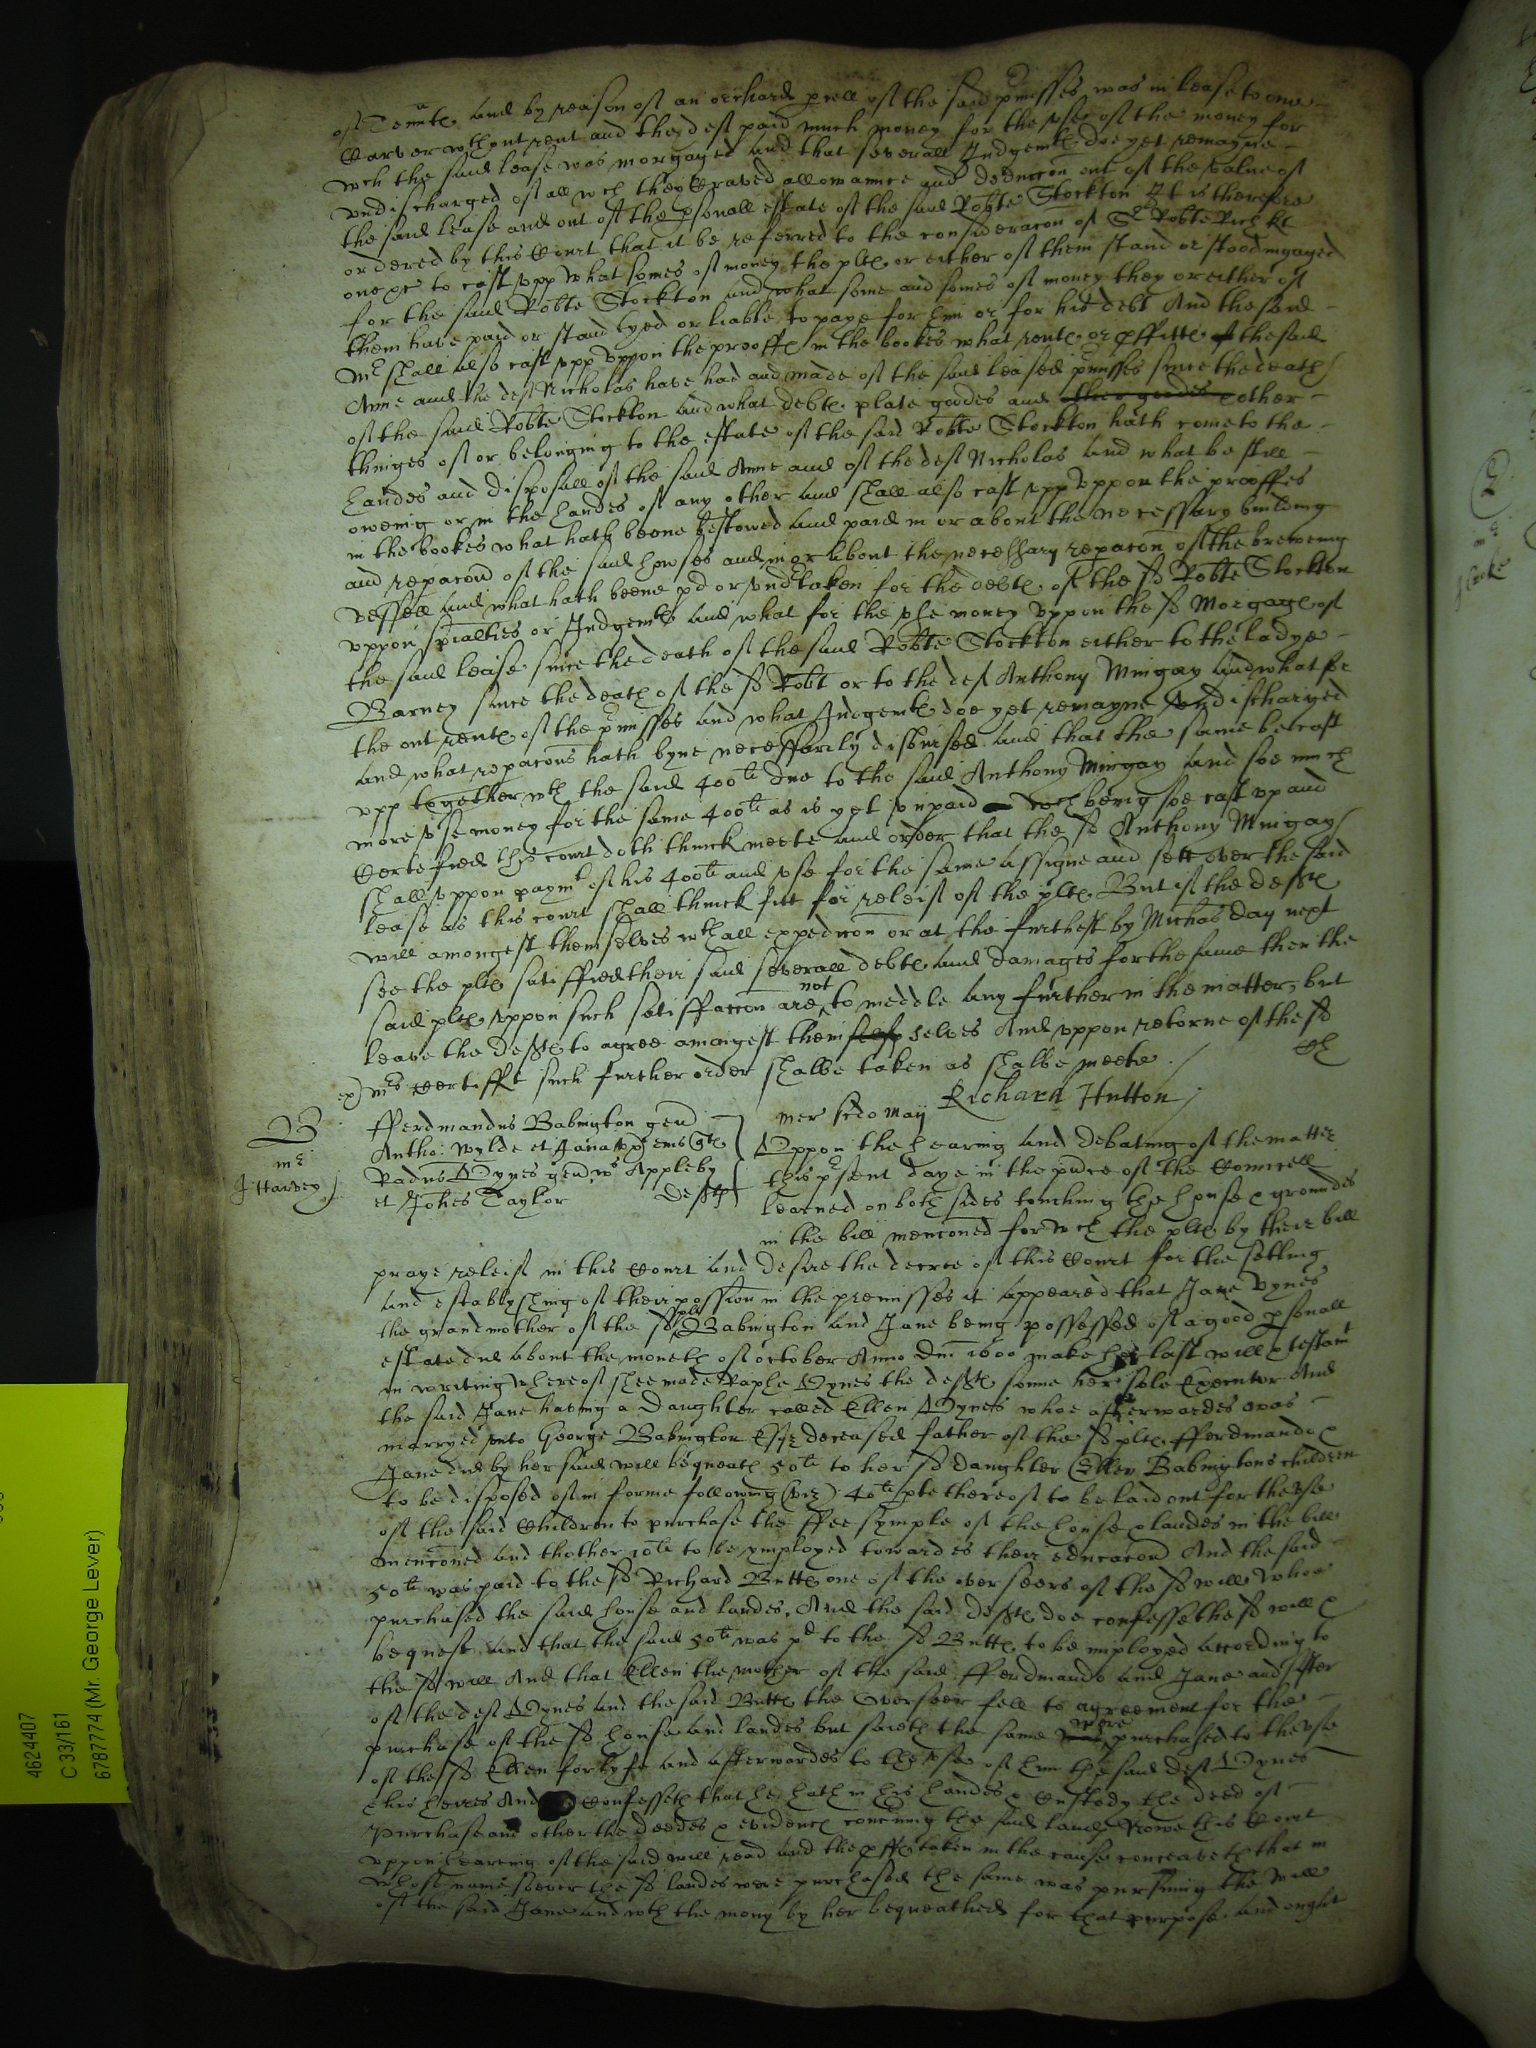 of Tenntes and by reason of an orchard pcell of the said pmisses was in lease to one
Carver wthout rent and the deft paid much money for the use of the money for
wch the said lease was morgaged and that severall Judgemtes doe yet remayne
undischarged of all wch they Craved allowannce and deduccon out of the value of
the said lease and out of the psonall estate of the said Robte Stockton It is therefore
ordered by this Court that it be referred to the consideracon of Sr Robte Rich kt
one &c to cast upp what somes of money the pltes or either of them stand or stood ingaged
for the said Robte Stockton and what some and somes of money they or either of
them have paid or stand tyed or liable to paye for him or for his debt And the said
Mr shall also cast upp uppon the prooffes in the bookes what rentes or pffittes the said
Anne and the deft Nicholas have had and made of the said leased pmisses since the death
of the said Robte Stockton and what debtes plate goodes and their goodes & other
thinges of or belonging to the estate of the said Robte Stockton hath come to the
handes and disposall of the said Anne and of the deft Nicholas and what be still
oweing or in the handes of any other and shall also cast upp uppon the prooffes
in the bookes what hath beene bestowed and paid in or about the necessary building
and reparacon of the said howses and in or about the necessary reparacon of the breweing
vessell and what hath beene pd or undtaken for the debtes of the sd Robte Stockton
uppon spialties or Judgemtes and what for the use money uppon the sd Morgage of
the said lease since the death of the said Robte Stockton either to the ladye
Barney since the death of the sd Robt or to the deft Anthony Mingay and what for
the out rentes of the pmisses and what Judgemtes doe yet remayne undischarged
and what reparacons hath byne necessarily disbursed and that the same be cast
upp together wth the said 400li due to the said Anthony Mingay and soe much
more use money for the same 400li as is yet unpaid wch being soe cast up and
Certefied this court doth thinck meete and order that the sd Anthony Mingay
shall uppon paymt of his 400li and use for the same assigne and sett over the said
lease as this court shall thinck fitt for releif of the pltes But if the deftes
will amongest themselves wth all expedicon or at the furthest by Michas day next
see the pltes satisffied their said severall debtes and damages for the same then the
said pltes uppon such satisffaccon are not to meddle any further in the matter, but
leave the deftes to agree amongest them selfe selves And uppon retorne of the sd
ex) Mrs Certifft such further order shalbe taken as shalbe meete
Richard Hutton
B
mr
J Harvey
fferdinandus Babington gen
Antho: Wylde et Jana
Radus Dynes gen ws Appleby
et Johes Taylor deftes
Mer scdo Maij
Uppon the hearing and debating of the matter
this psent daye in the pnce of the Councell
learned on both sides touching the house & groundes
in the bill mencioned for wch the pltes by their bill
praye releif in this Court and desire the decree of this Court for the setling
and establishing of their possion in the premisses it appeared that Jane Dynes
the grandmother of the sd plt Babington and Jane being possessed of a good psonall
estate did about the moneth of october Anno Dni 1600 make her last will & testamt
in writing whereof shee made Raphe Dynes the deft sonne her sole Executor And
the said Jane having a Daughter called Ellen Dynes whoe afterwardes was
marryed unto George Babington Esqr deceased father of the sd pltes fferdinando &
Jane did by her said will bequeath 50li to her sd daughter Ellen Babingtons children
to be disposed of in forme following (viz) 40li pte thereof to be laid out for the use
of the said Children to purchase the ffee symple of the house & landes in the bill
mencioned and thother 10li to be ymployed towardes their educacon And the said
50li was paid to the sd Richard Butte one of the overseers of the sd will whoe
purchased the said house and landes, And the said deftes doe confesse the sd will &
bequest and that the said 50li was pd to the sd Butte to be imployed according to
the sd will And that Ellen the mother of the said fferdinando and Jane and sister
of the deft Dynes and the said Butte the Overseer fell to agreement for the
purchase of the sd house and landes but saieth the same was were purchased to the use
of the sd Ellen for lyfe and afterwardes to the use of him the said deft Dynes
& his heires And Confesseth that he hath in his handes & Custody the deed of
Purchase and other the deedes & evidences concerning the said landes Nowe this Court
uppon hearing of the said will read and the pffes taken in the cause conceaveth that in
whose name soever the sd landes were purchased the same was pursuing the will
of the said Jane and wth the mony by her bequeathed for that purpose and ought
4624407
C 33/161
6787774 (Mr. George Lever)